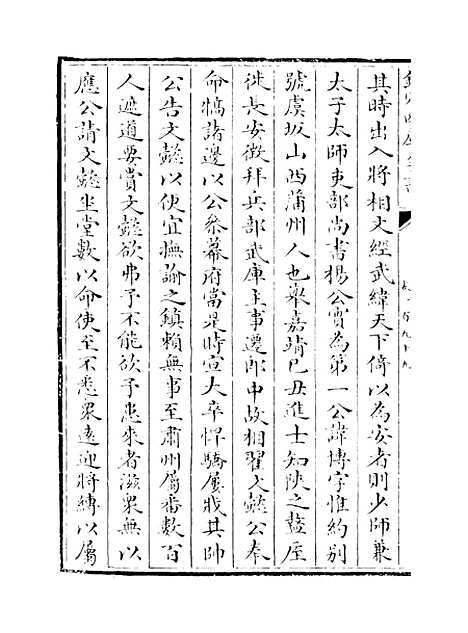 其時出入將相文經武緯天下倚以為安者則少師兼
太子太師吏部尚書楊公實為第一公諱博字惟約別
號虞坂山西蒲州人也舉嘉靖己丑進士知陜之盩厔
徙長安徴拜兵部武庫主事遷郎中故相翟文懿公奉
命犒諸邊以公叅幕府當是時宣大卒悍驕屢戕其帥
公告文懿以使宜撫諭之鎮賴無事至肅州屬番數百
人遮道要賞文懿欲弗予不能欲予患來者滋衆無以
應公請文懿坐堂數以命使至不悉衆逺迎將縛以屬